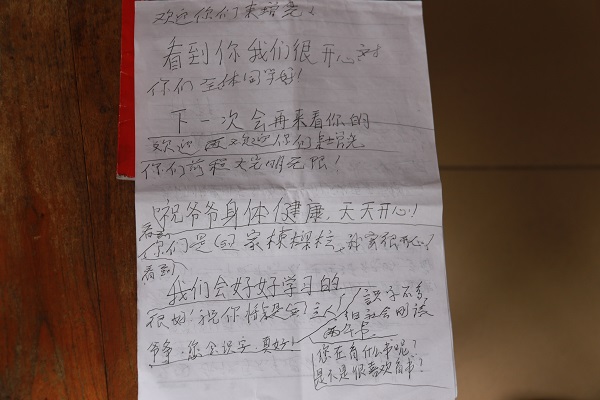 欢迎你们来增光!
看到你我们很开心 对
你们全体同学好!
下一次会再来看你的
欢迎 再欢迎你们来增光
你们前程大光明无限!
祝爷爷身体健康,天天开心!
看到
你们是 国家栋梁 我很开心!
看到
我们会好好学习的
很好!祝你将是国主人!
识字不多
旧社会 读
两年书
爷爷,您会识字,真好!
您在看什么书呢?
是不是很喜欢看书?